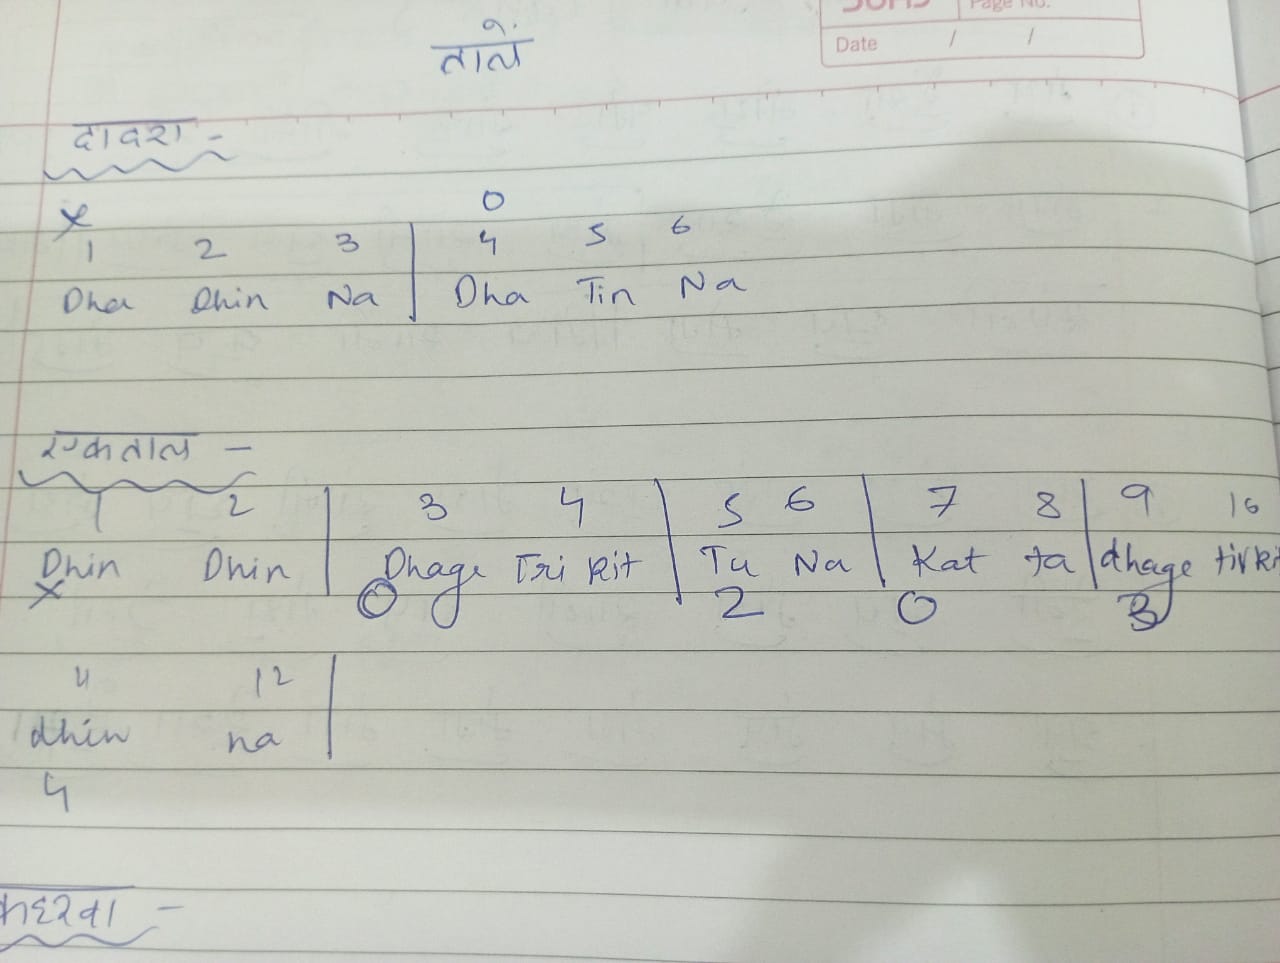 Page No.
Date / /
तालें
दादरा -
x 0
1 2 3 | 4 5 6
Dha Dhin Na | Dha Tin Na
एकताल -
1 2 | 3 4 | 5 6 | 7 8 | 9 10
Dhin Dhin | Dhage Tri Kit | Tu Na | Kat ta | dhage tirki
x 0 2 0 3
11 12 |
dhin na |
4
कहरवा -